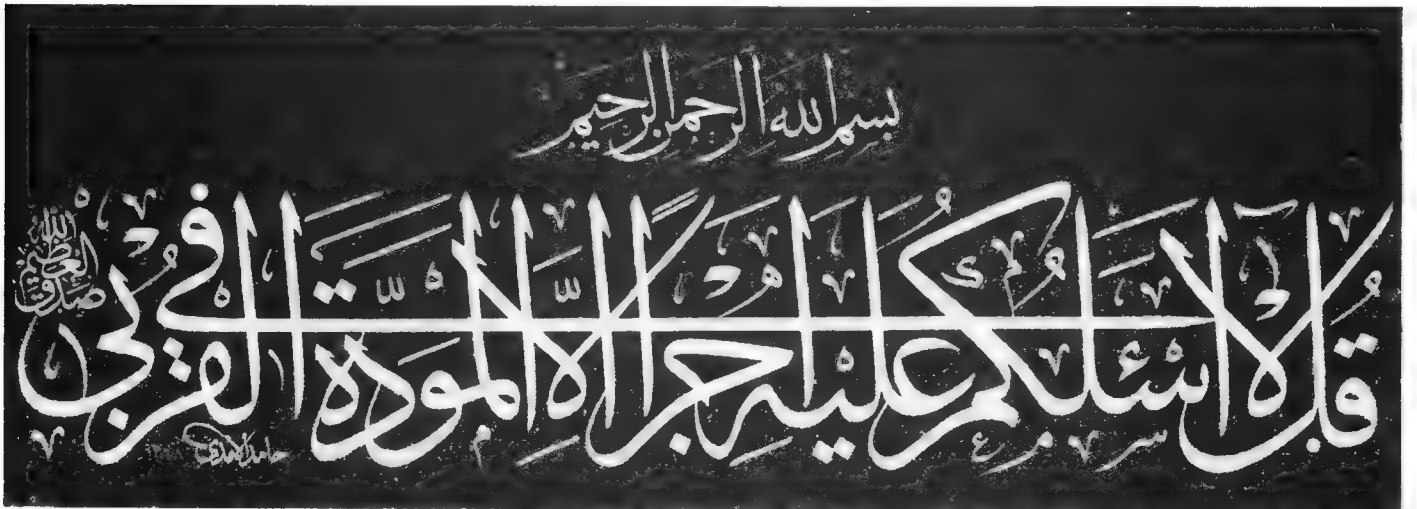 بسم الله الرحمن الرحيم
قُل لَا اسْئَلُكُمْ عَلَيْهِ اَجْرًا اِلَّا الْمَوَدَّةَ فِي الْقُرْبٰى
صدق الله العظيم